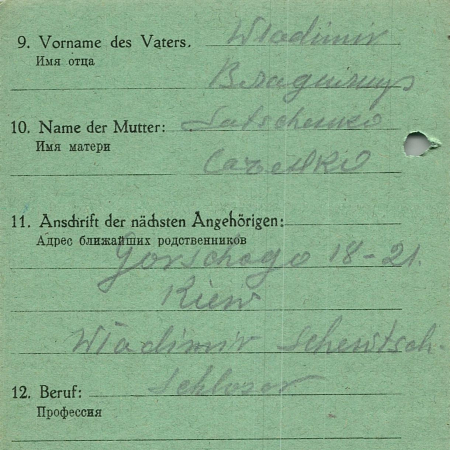 9. Vorname des Vaters. Wladimir
Имя отца
Владимир
10. Name der Mutter: Satschenko
Имя матери
Саченко
11. Anschrift der nächsten Angehörigen:
Адрес ближайших родственников
Gorschago 18-21.
Kiew
Wladimir Schewtsch.
12. Beruf: Schlosor
Профессия